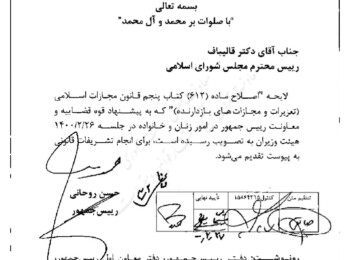 بسمه تعالی
"با صلوات بر محمد و آل محمد"
جناب آقای دکتر قالیباف
رییس محترم مجلس شورای اسلامی
لایحه "اصلاح ماده (۶۱۲) کتاب پنجم قانون مجازات اسلامی
(تعزیرات و مجازات های بازدارنده)" که به پیشنهاد قوه قضاییه و
معاونت رییس جمهور در امور زنان و خانواده در جلسه ۱۴۰۰/۲/۲۶
هیئت وزیران به تصویب رسیده است، برای انجام تشریفات قانونی
به پیوست تقدیم می‌شود.
حسن روحانی
رییس جمهور
تایید نهایی
کنترل